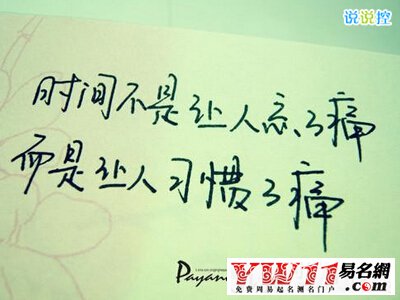 说说控
时间不是让人忘了痛
而是让人习惯了痛
Payan
YWTT易名網.COM
免费周易起名测名门户